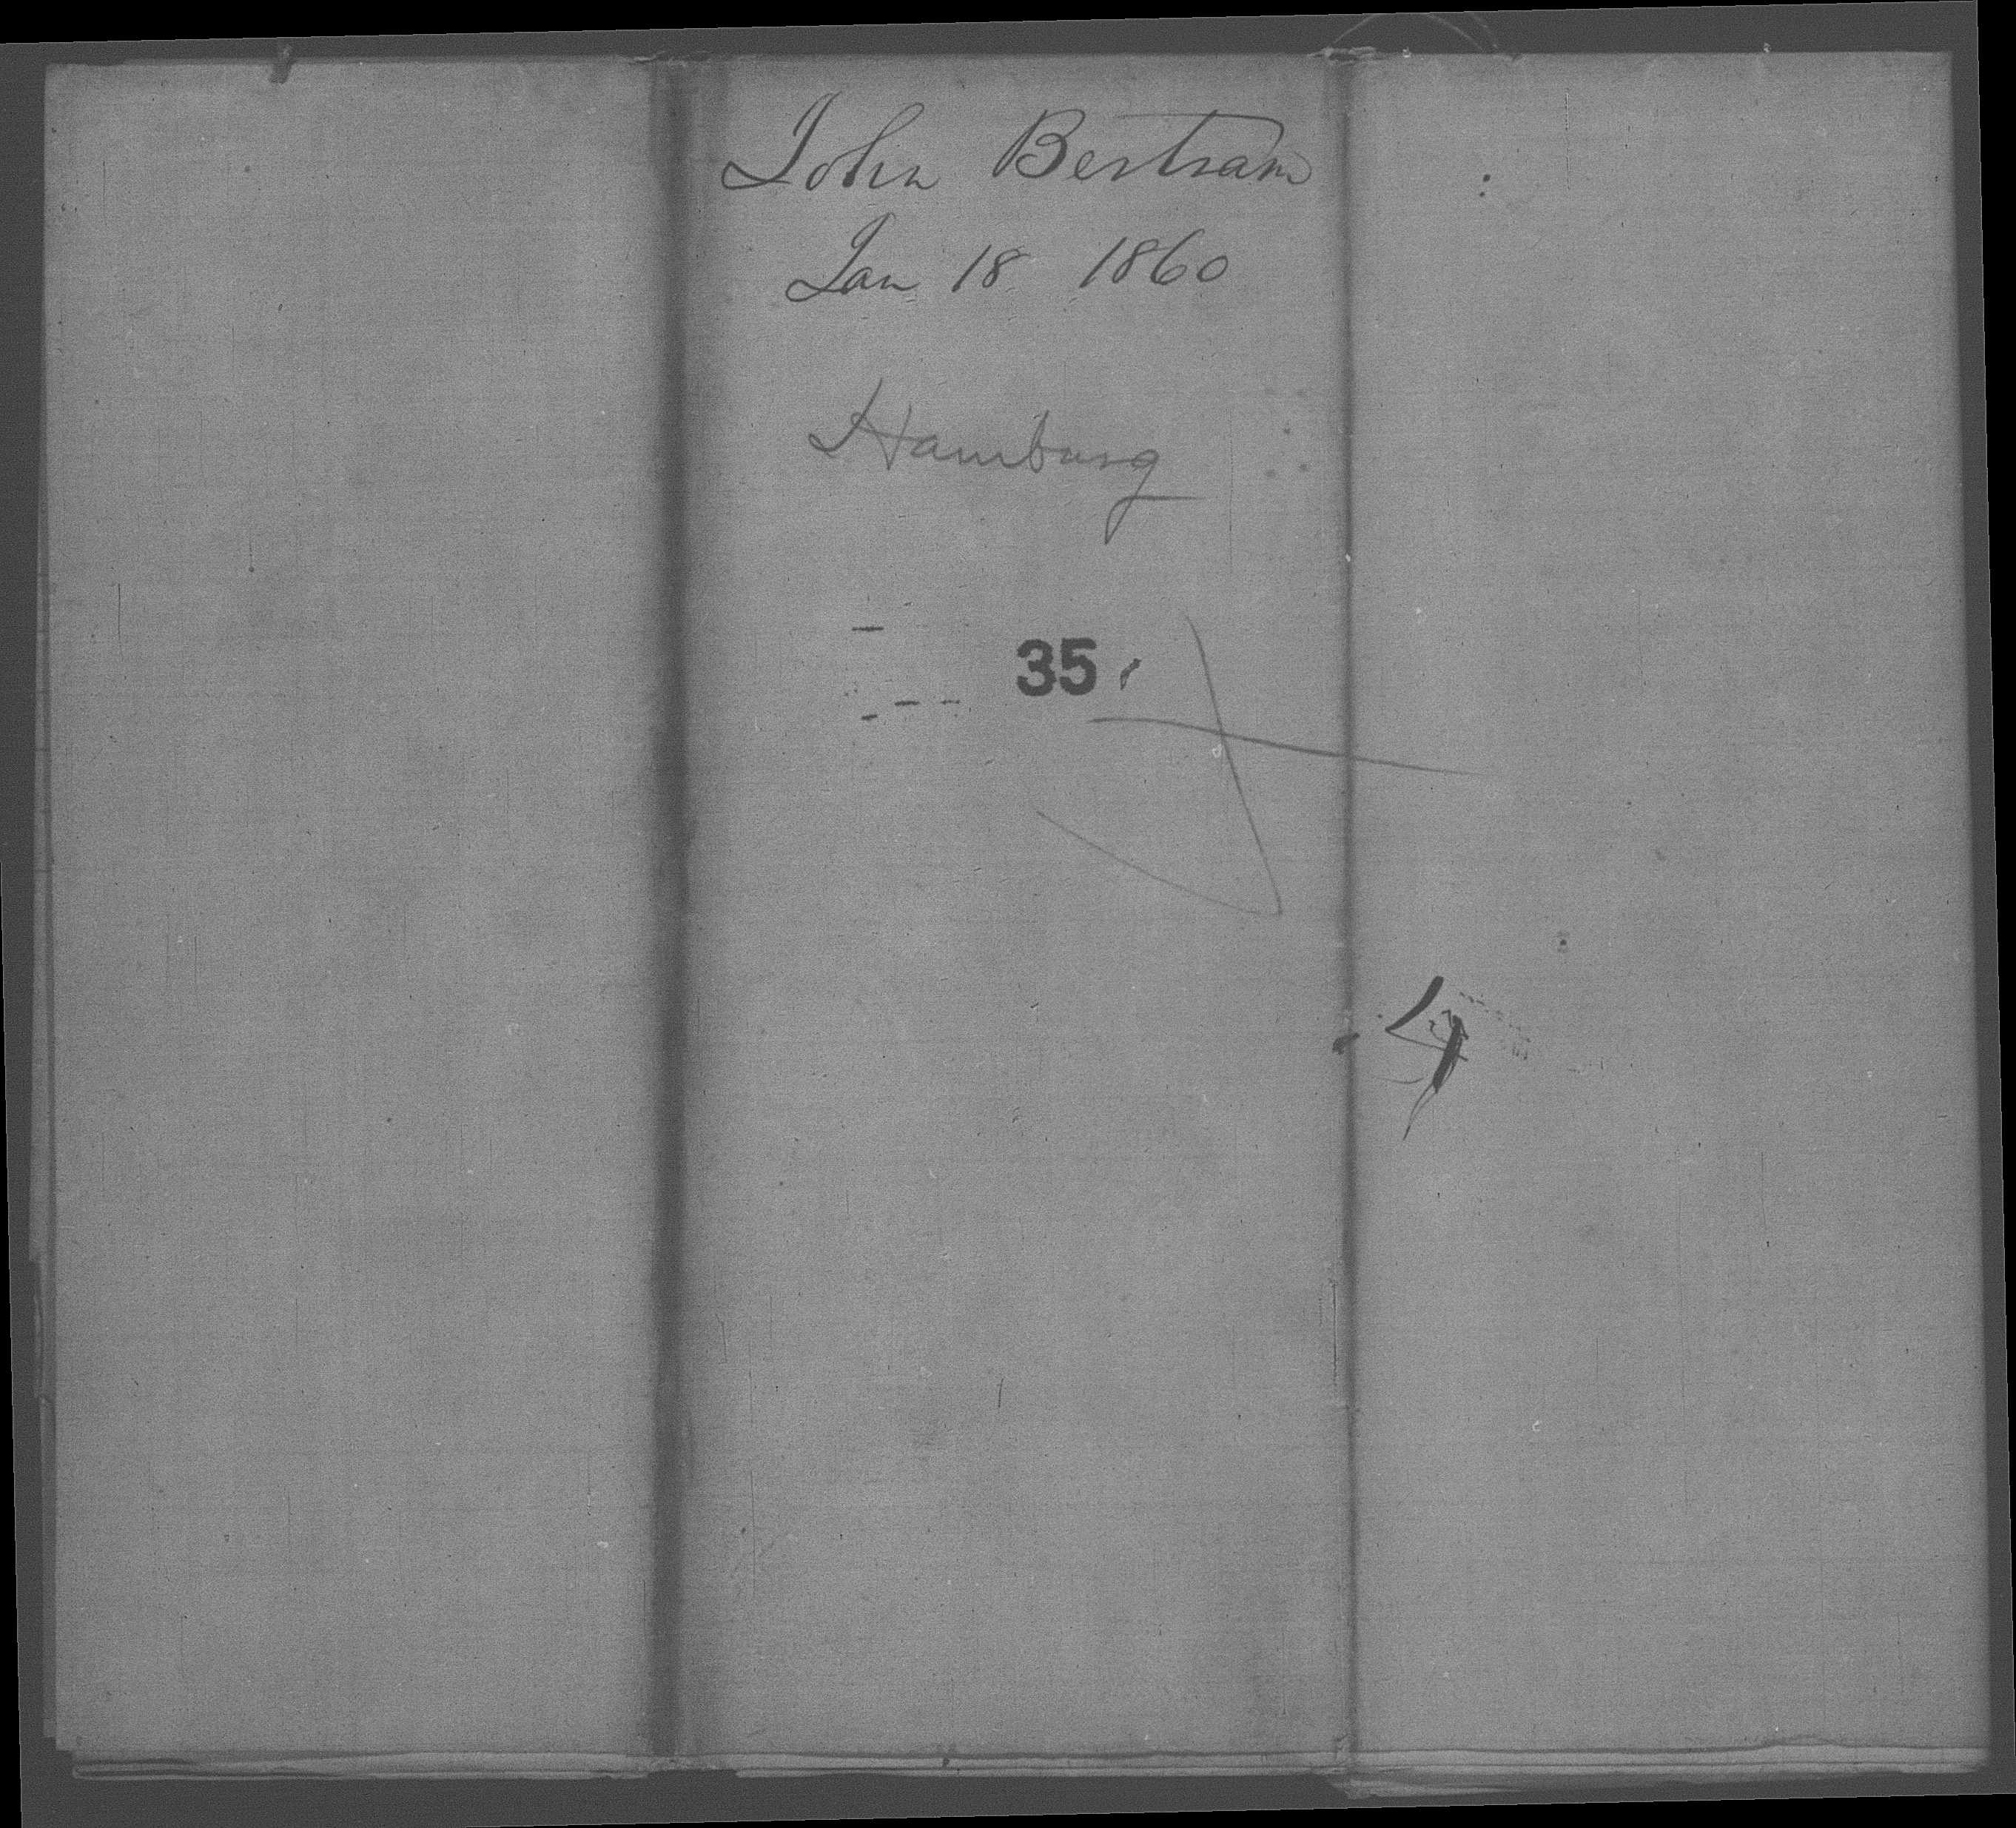 John Bertram
Jan 18 1860
Hamburg
35